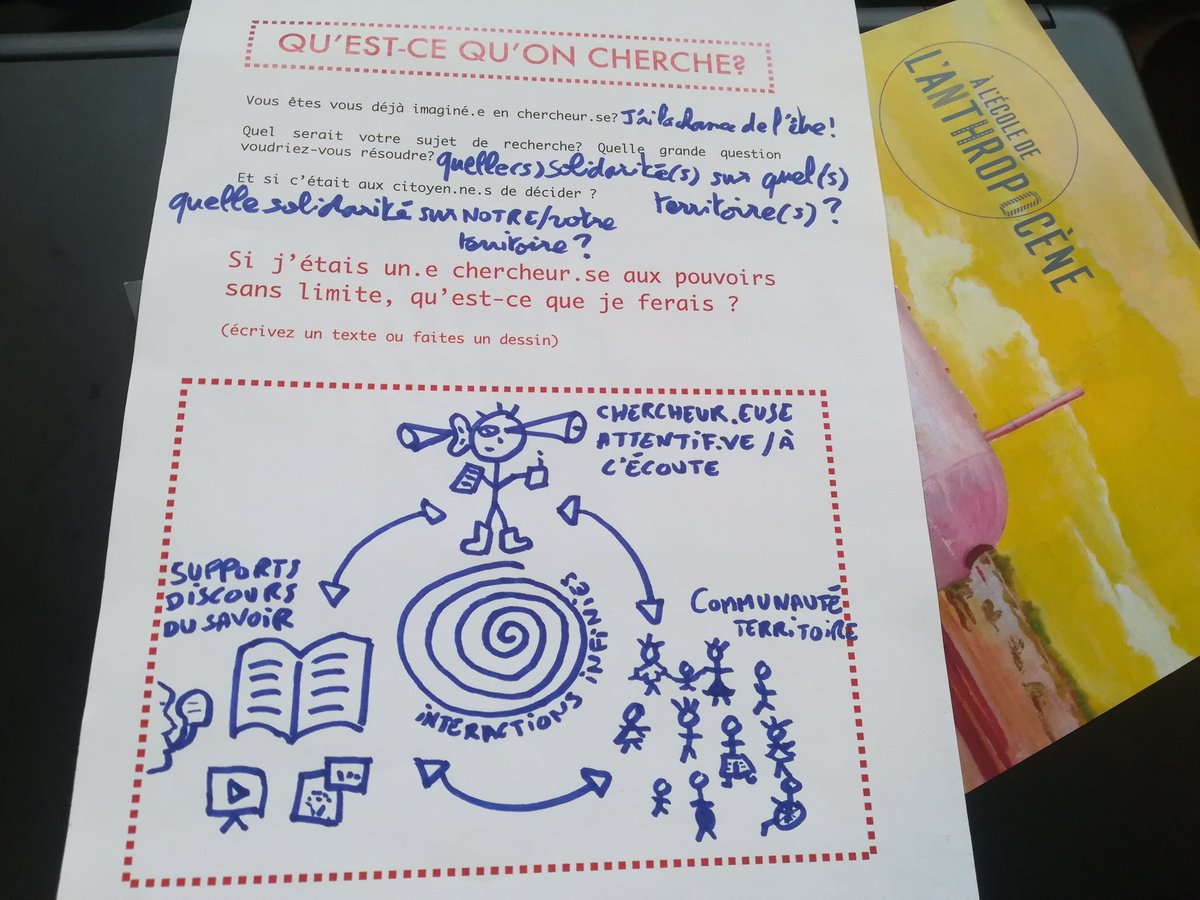 QU'EST-CE QU'ON CHERCHE?
Vous êtes vous déjà imaginé.e en chercheur.se? J'ai la chance de l'être!
Quel serait votre sujet de recherche? Quelle grande question
voudriez-vous résoudre? quelle(s) solidarité(s) sur quel(s)
territoire(s) ?
Et si c'était aux citoyen.ne.s de décider ?
quelle solidarité sur NOTRE/votre
territoire ?
Si j'étais un.e chercheur.se aux pouvoirs
sans limite, qu'est-ce que je ferais ?
(écrivez un texte ou faites un dessin)
CHERCHEUR.EUSE
ATTENTIF.VE / À
L'ÉCOUTE
SUPPORTS
DISCOURS
DU SAVOIR
INTERACTIONS INFINIES
COMMUNAUTÉ
TERRITOIRE
À L'ÉCOLE DE
L'ANTHROPOCÈNE